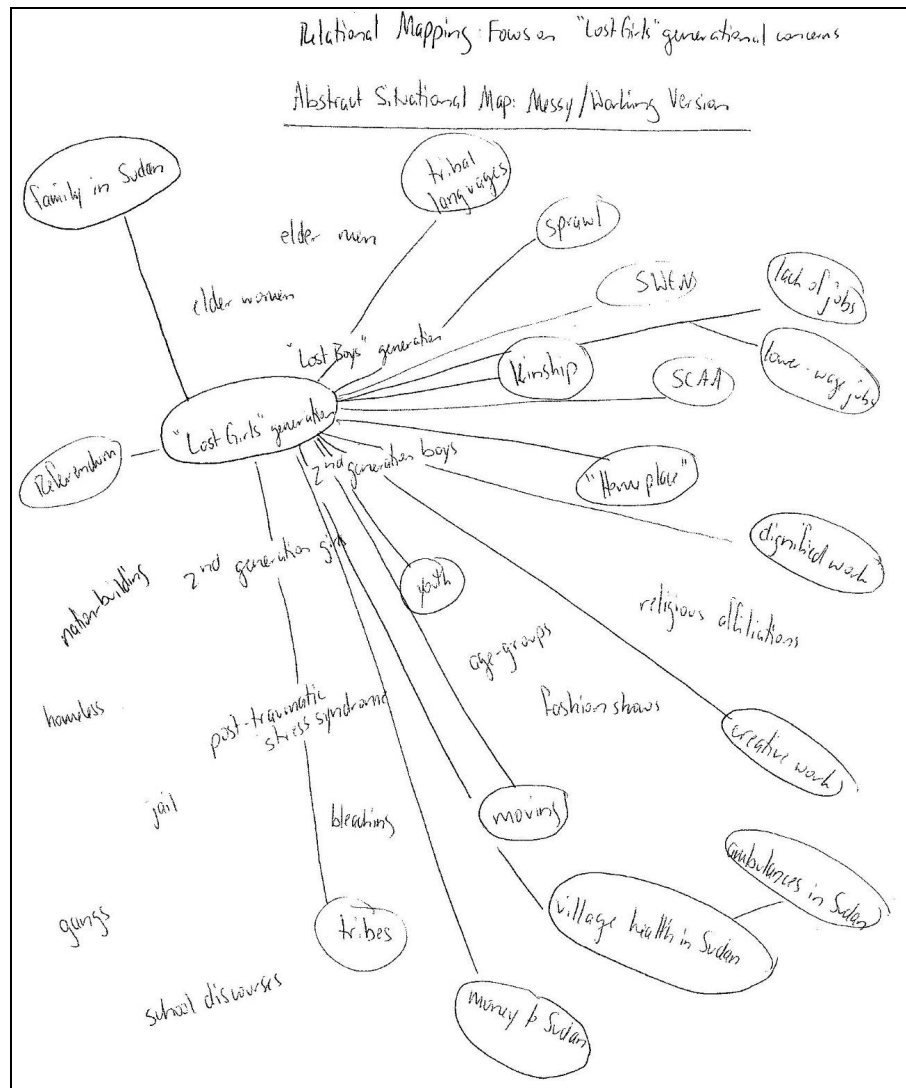 Relational Mapping: Focus on "Lost Girls" generational concerns
Abstract Situational Map: Messy/Working Version
family in Sudan
tribal
languages
elder men
sprawl
elder women
SWEN
lack of jobs
"Lost Boys" generation
Kinship
lower-wage jobs
SCAA
"Lost Girls" generation
Referendum
2nd generation boys
"Homeplace"
dignified work
nationbuilding
2nd generation girls
youth
religious affiliations
age-groups
homeless
post-traumatic
stress syndrome
fashion shows
creative work
jail
bleaching
moving
ambulances in Sudan
gangs
tribes
village health in Sudan
school discourses
money to Sudan